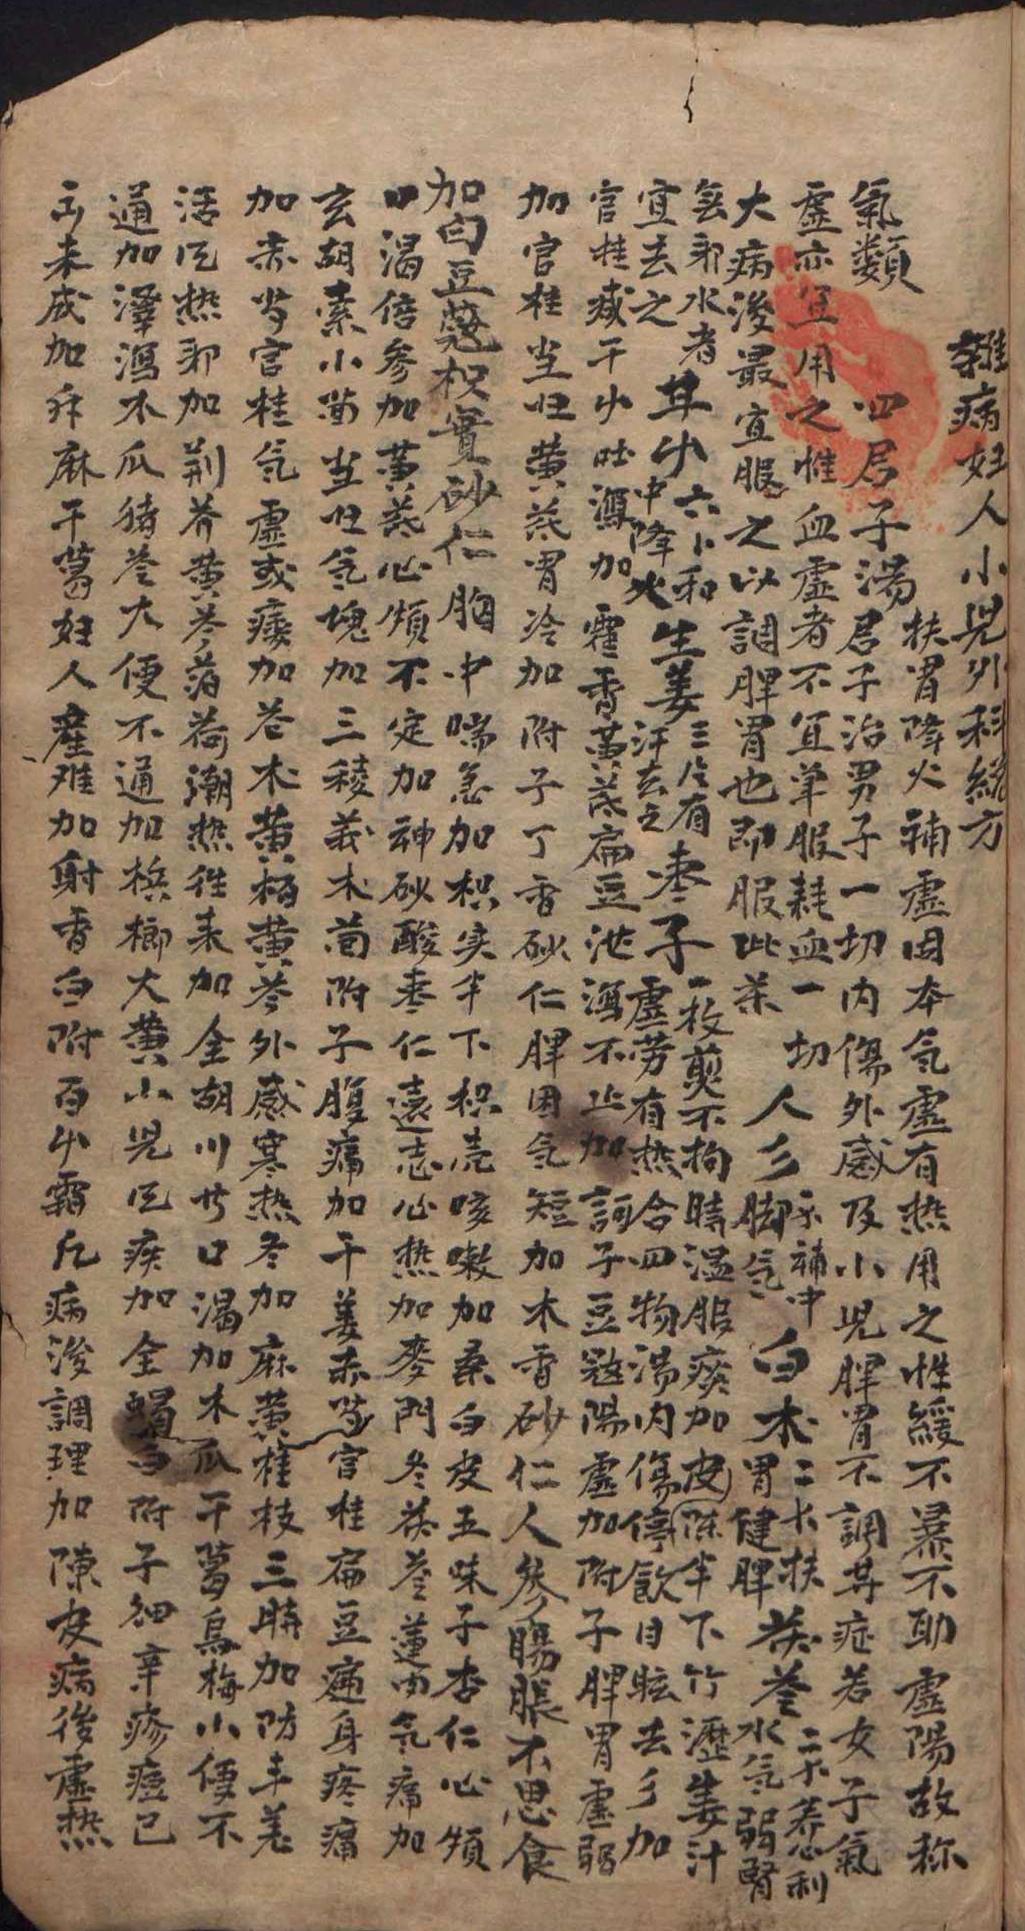 雜病妇人小児外科総方
氣類 四君子湯 扶胃降火補虚因本気虚有热用之性緩不暴不助虚陽故称
君子治男子一切内傷外感及小児脾胃不調其症若女子氣
虚亦宜用之惟血虚者不宜单服耗血一切 人参 脚气 补中 白术 二卜扶胃健脾 茯苓 二卜养心利水气弱腎
大病後最宜服之以調脾胃也即服此茶
無邪水者宜去之 甘艸 六卜和中降火 生姜 三片有汗去之 枣子 一枚煎不拘時温服痰加陈皮半下竹瀝姜汁
虚劳有热合四物湯内傷停飲目眩去参加
官桂减干艸吐瀉加藿香黄茋扁豆泄瀉不止加訶子豆蔻陽虚加附子脾胃虚弱
加官桂当归黄茋胃冷加附子丁香砂仁脾困气短加木香砂仁人参腸脹不思食
加白豆蔻枳實砂仁胸中喘急加枳实半下枳壳咳嗽加桑白皮五味子杏仁心煩
口渴倍参加黄茋心煩不定加神砂酸枣仁遠志心热加麥門冬茯苓蓮肉气痛加
玄胡索小茴当归气塊加三稜莪术茴附子腹痛加干姜赤芍官桂扁豆痛身疼痛
加赤芍官桂气虚或痿加苍术黄柏黄芩外感寒热冬加麻黄桂枝三時加防丰羌
活風热邪加荆芥黄芩薄荷潮热往来加全胡川芎口渴加木瓜干葛烏梅小便不
通加澤瀉木瓜猪苓大便不通加梹榔大黄小児風疾加全蝎白附子细辛疹痘已
出未成加升麻干葛妇人産难加射香白附百艸霜凡病後調理加陳皮病後虚热